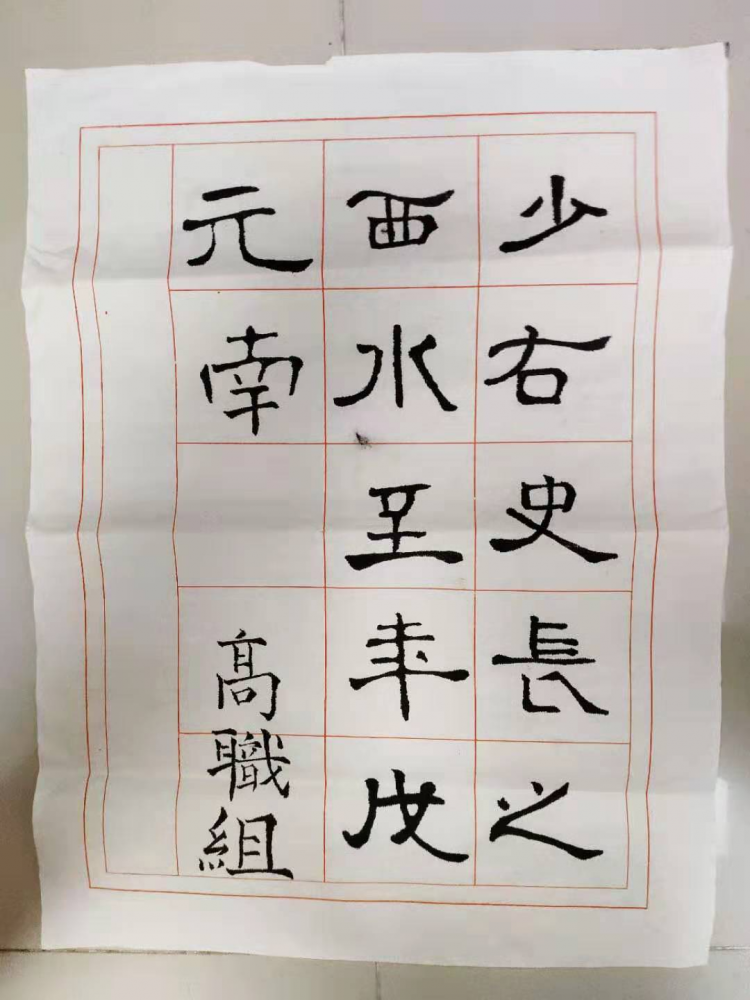 少右史長之
西水至年戊
元南
高職組